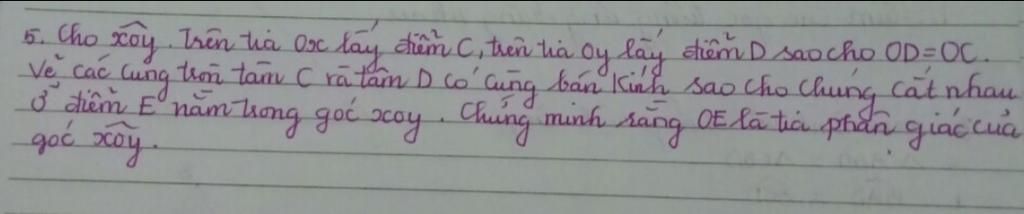 5. Cho xôy. Trên tia Ox lấy điểm C, trên tia Oy lấy điểm D sao cho OD=OC.
Vẽ các cung tròn tâm C và tâm D có cùng bán kính sao cho chúng cắt nhau
ở điểm E nằm trong góc xoy. Chứng minh rằng OE là tia phân giác của
góc xôy.